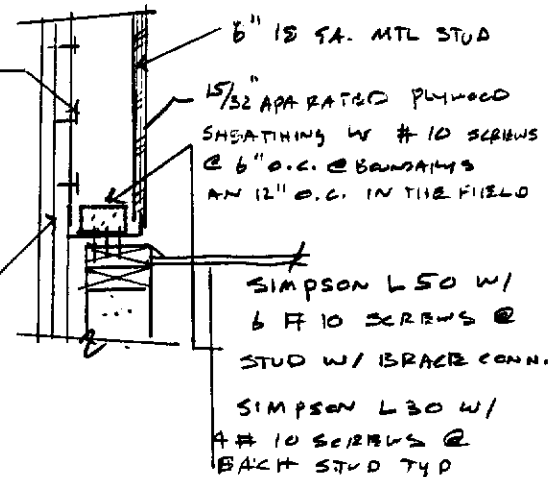 6" 18 GA. MTL STUD
15/32" APA RATED PLYWOOD
SHEATHING W/ #10 SCREWS
@ 6" O.C. @ BOUNDARYS
AN 12" O.C. IN THE FIELD
SIMPSON L50 W/
6 #10 SCREWS @
STUD W/ BRACE CONN.
SIMPSON L30 W/
4 #10 SCREWS @
EACH STUD TYP